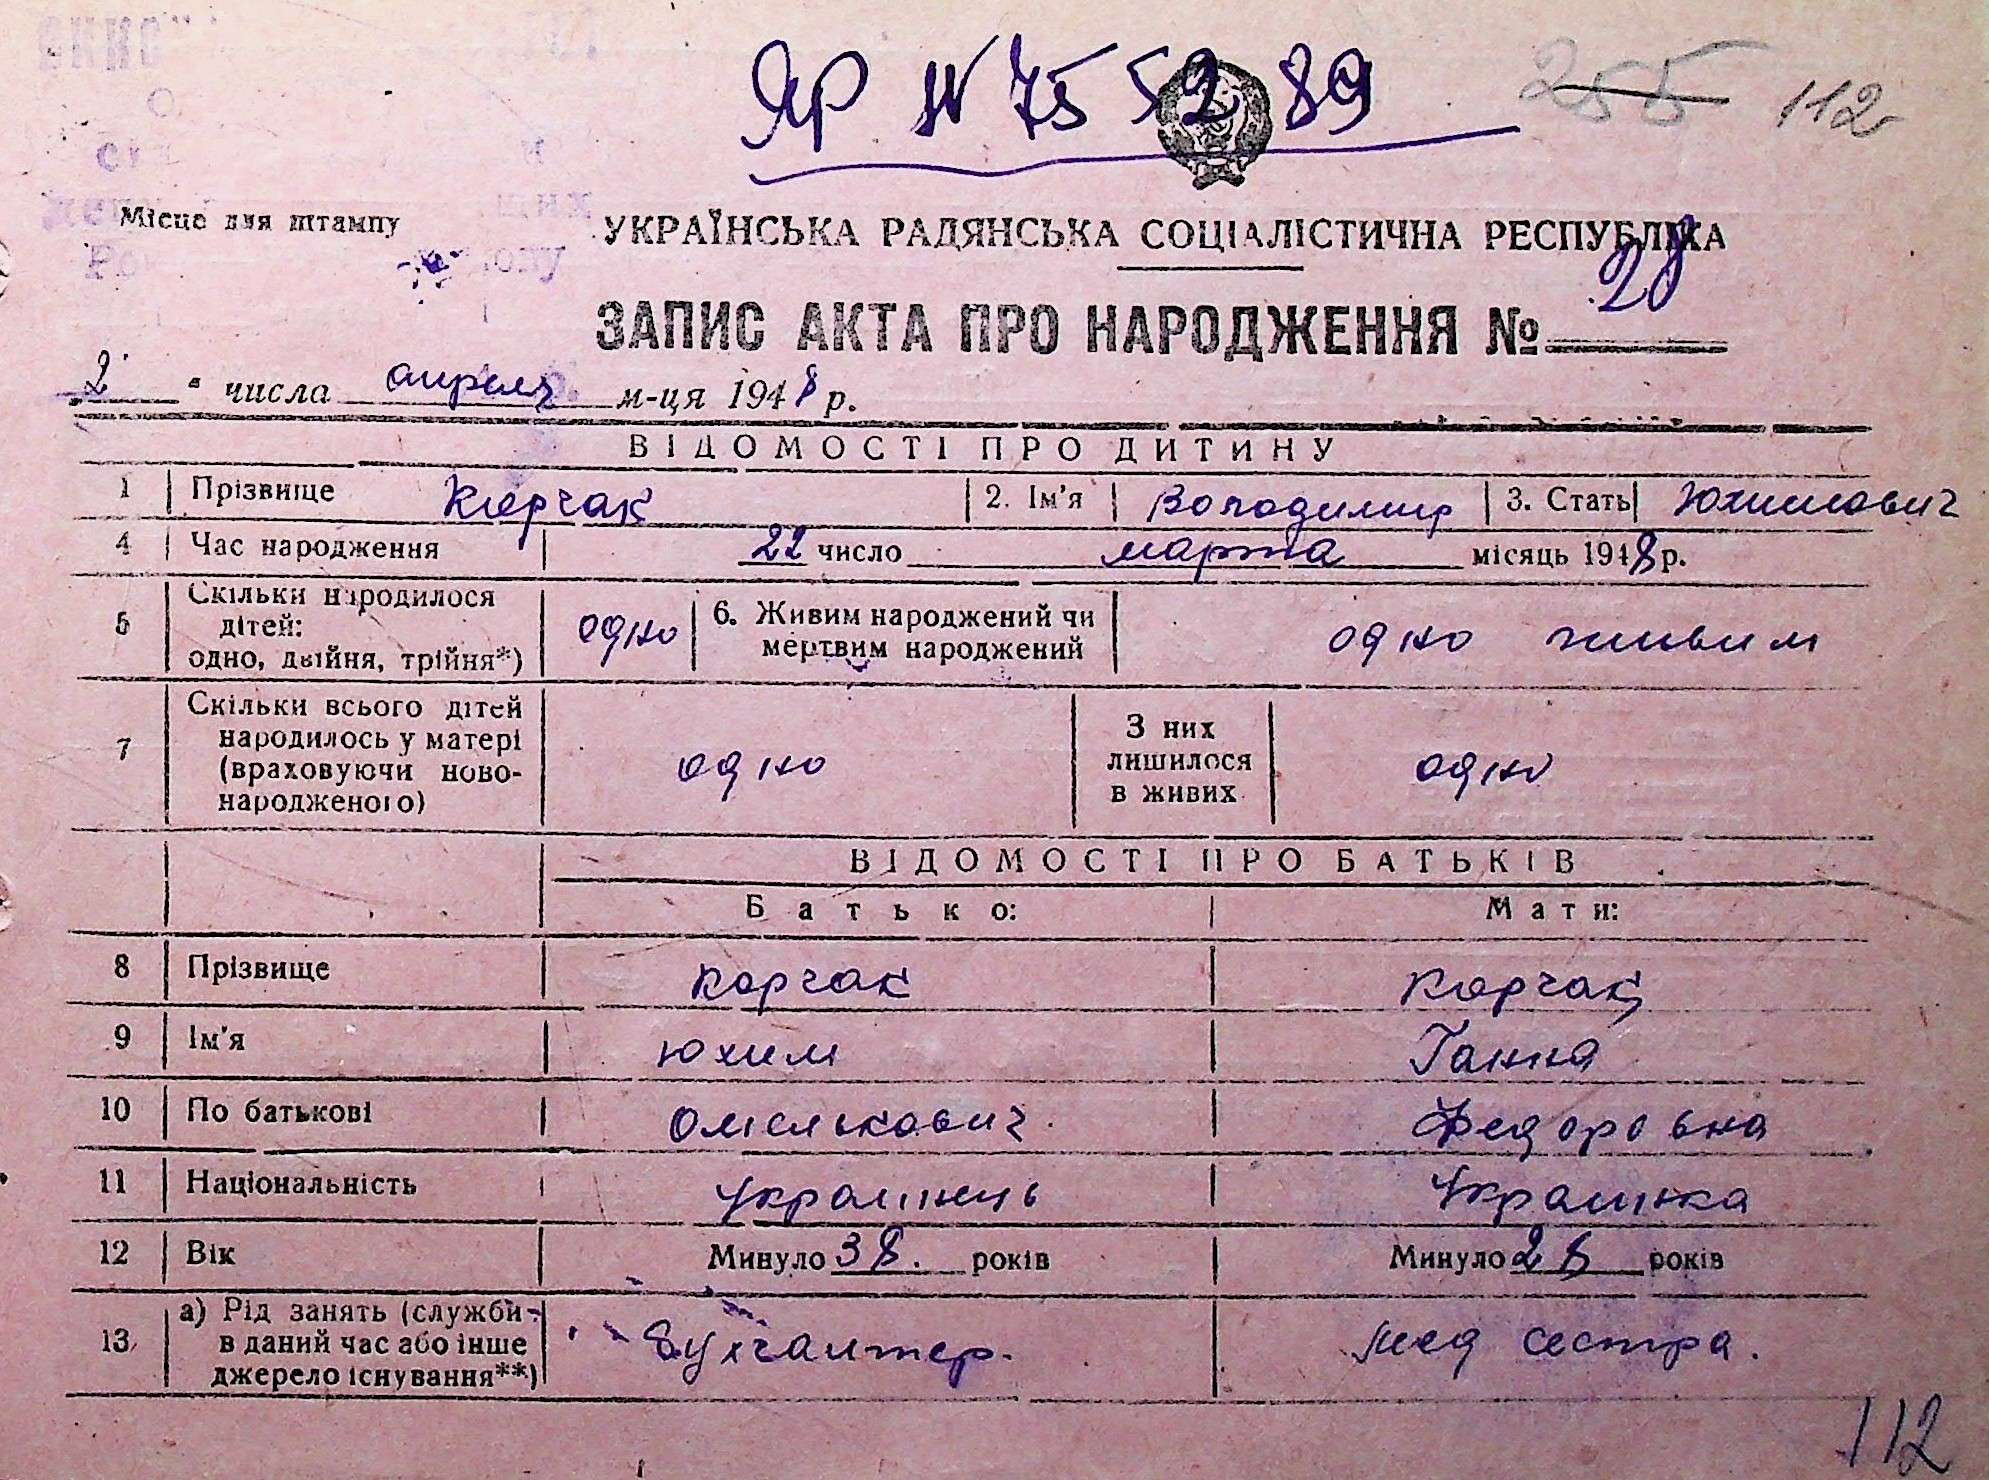 ЯР № 755289
255 112
Місце для штампу
УКРАЇНСЬКА РАДЯНСЬКА СОЦІАЛІСТИЧНА РЕСПУБЛІКА
ЗАПИС АКТА ПРО НАРОДЖЕННЯ № 28
„2“ числа апреля м-ця 1948 р.
ВІДОМОСТІ ПРО ДИТИНУ
1 Прізвище Корчак 2. Ім'я Володимир 3. Стать Юхимович
4 Час народження 22 число марта місяць 1948 р.
5 Скільки народилося дітей: одно, двійня, трійня*) одно 6. Живим народжений чи мертвим народжений одно живим
7 Скільки всього дітей народилось у матері (враховуючи ново-народженого) одно З них лишилося в живих одно
ВІДОМОСТІ ПРО БАТЬКІВ
Батько: Мати:
8 Прізвище Корчак Корчак
9 Ім'я Юхим Ганна
10 По батькові Омелькович Федоровна
11 Національність Українець Українка
12 Вік Минуло 38. років Минуло 28 років
13 а) Рід занять (служби в даний час або інше джерело існування**) Бухгалтер. Мед сестра.
112